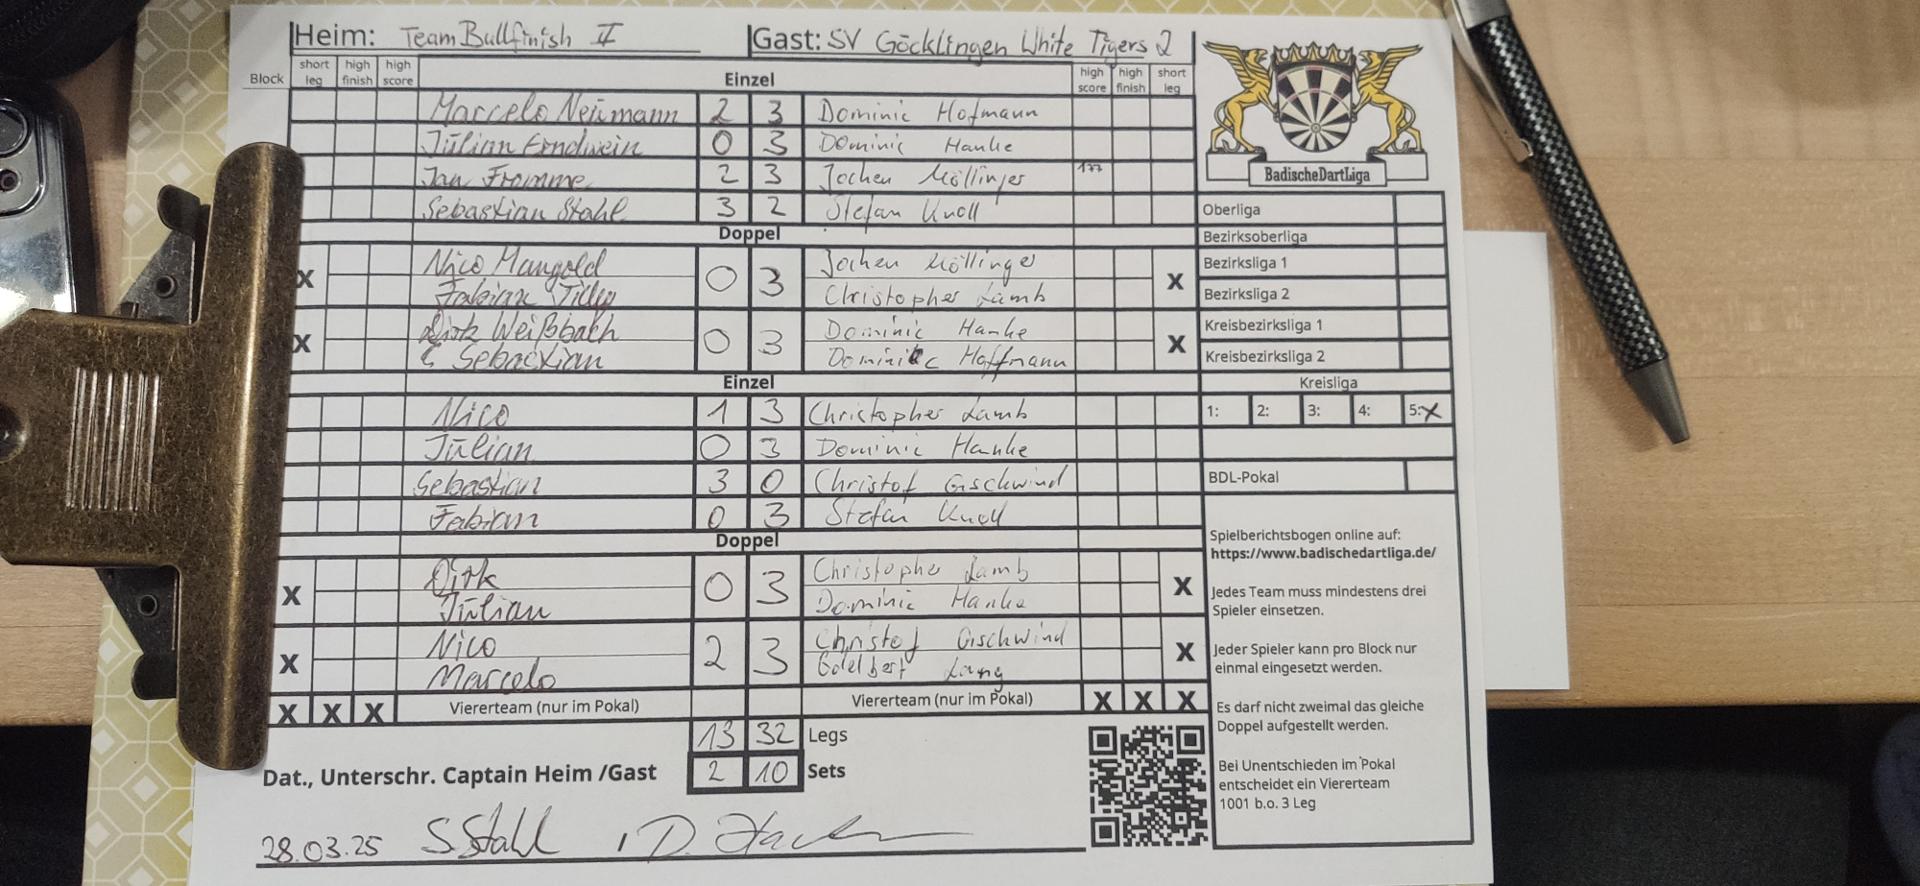 Heim: Team Bullfinish II Gast: SV Göcklingen White Tigers 2
Block short leg high finish high score Einzel high score high finish short leg
Marcelo Neumann 2 3 Dominic Hofmann
Julian Erndwein 0 3 Dominic Hanke
Jan Fromme 2 3 Jochen Möllinger 177
Sebastian Stahl 3 2 Stefan Knoll
Doppel
X Nico Mangold 0 3 Jochen Möllinger X
Fabian Tilly Christopher Lamb
X Dirk Weißbach 0 3 Dominic Hanke X
& Sebastian Dominic Hoffmann
Einzel
Nico 1 3 Christopher Lamb
Julian 0 3 Dominic Hanke
Sebastian 3 0 Christof Gschwind
Fabian 0 3 Stefan Knoll
Doppel
X Dirk 0 3 Christopher Lamb X
Julian Dominic Hanke
X Nico 2 3 Christof Gschwind X
Marcelo Lang
X X X Vierteam (nur im Pokal) Vierteam (nur im Pokal) X X X
13 32 Legs
Dat., Unterschr. Captain Heim /Gast 2 10 Sets
28.03.25 S Stahl
BadischeDartLiga
Oberliga
Bezirksoberliga
Bezirksliga 1
Bezirksliga 2
Kreisbezirksliga 1
Kreisbezirksliga 2
Kreisliga
1: 2: 3: 4: 5: X
BDL-Pokal
Spielberichtsbogen online auf:
https://www.badischedartliga.de/
Jedes Team muss mindestens drei
Spieler einsetzen.
Jeder Spieler kann pro Block nur
einmal eingesetzt werden.
Es darf nicht zweimal das gleiche
Doppel aufgestellt werden.
Bei Unentschieden im Pokal
entscheidet ein Viererteam
1001 b.o. 3 Leg